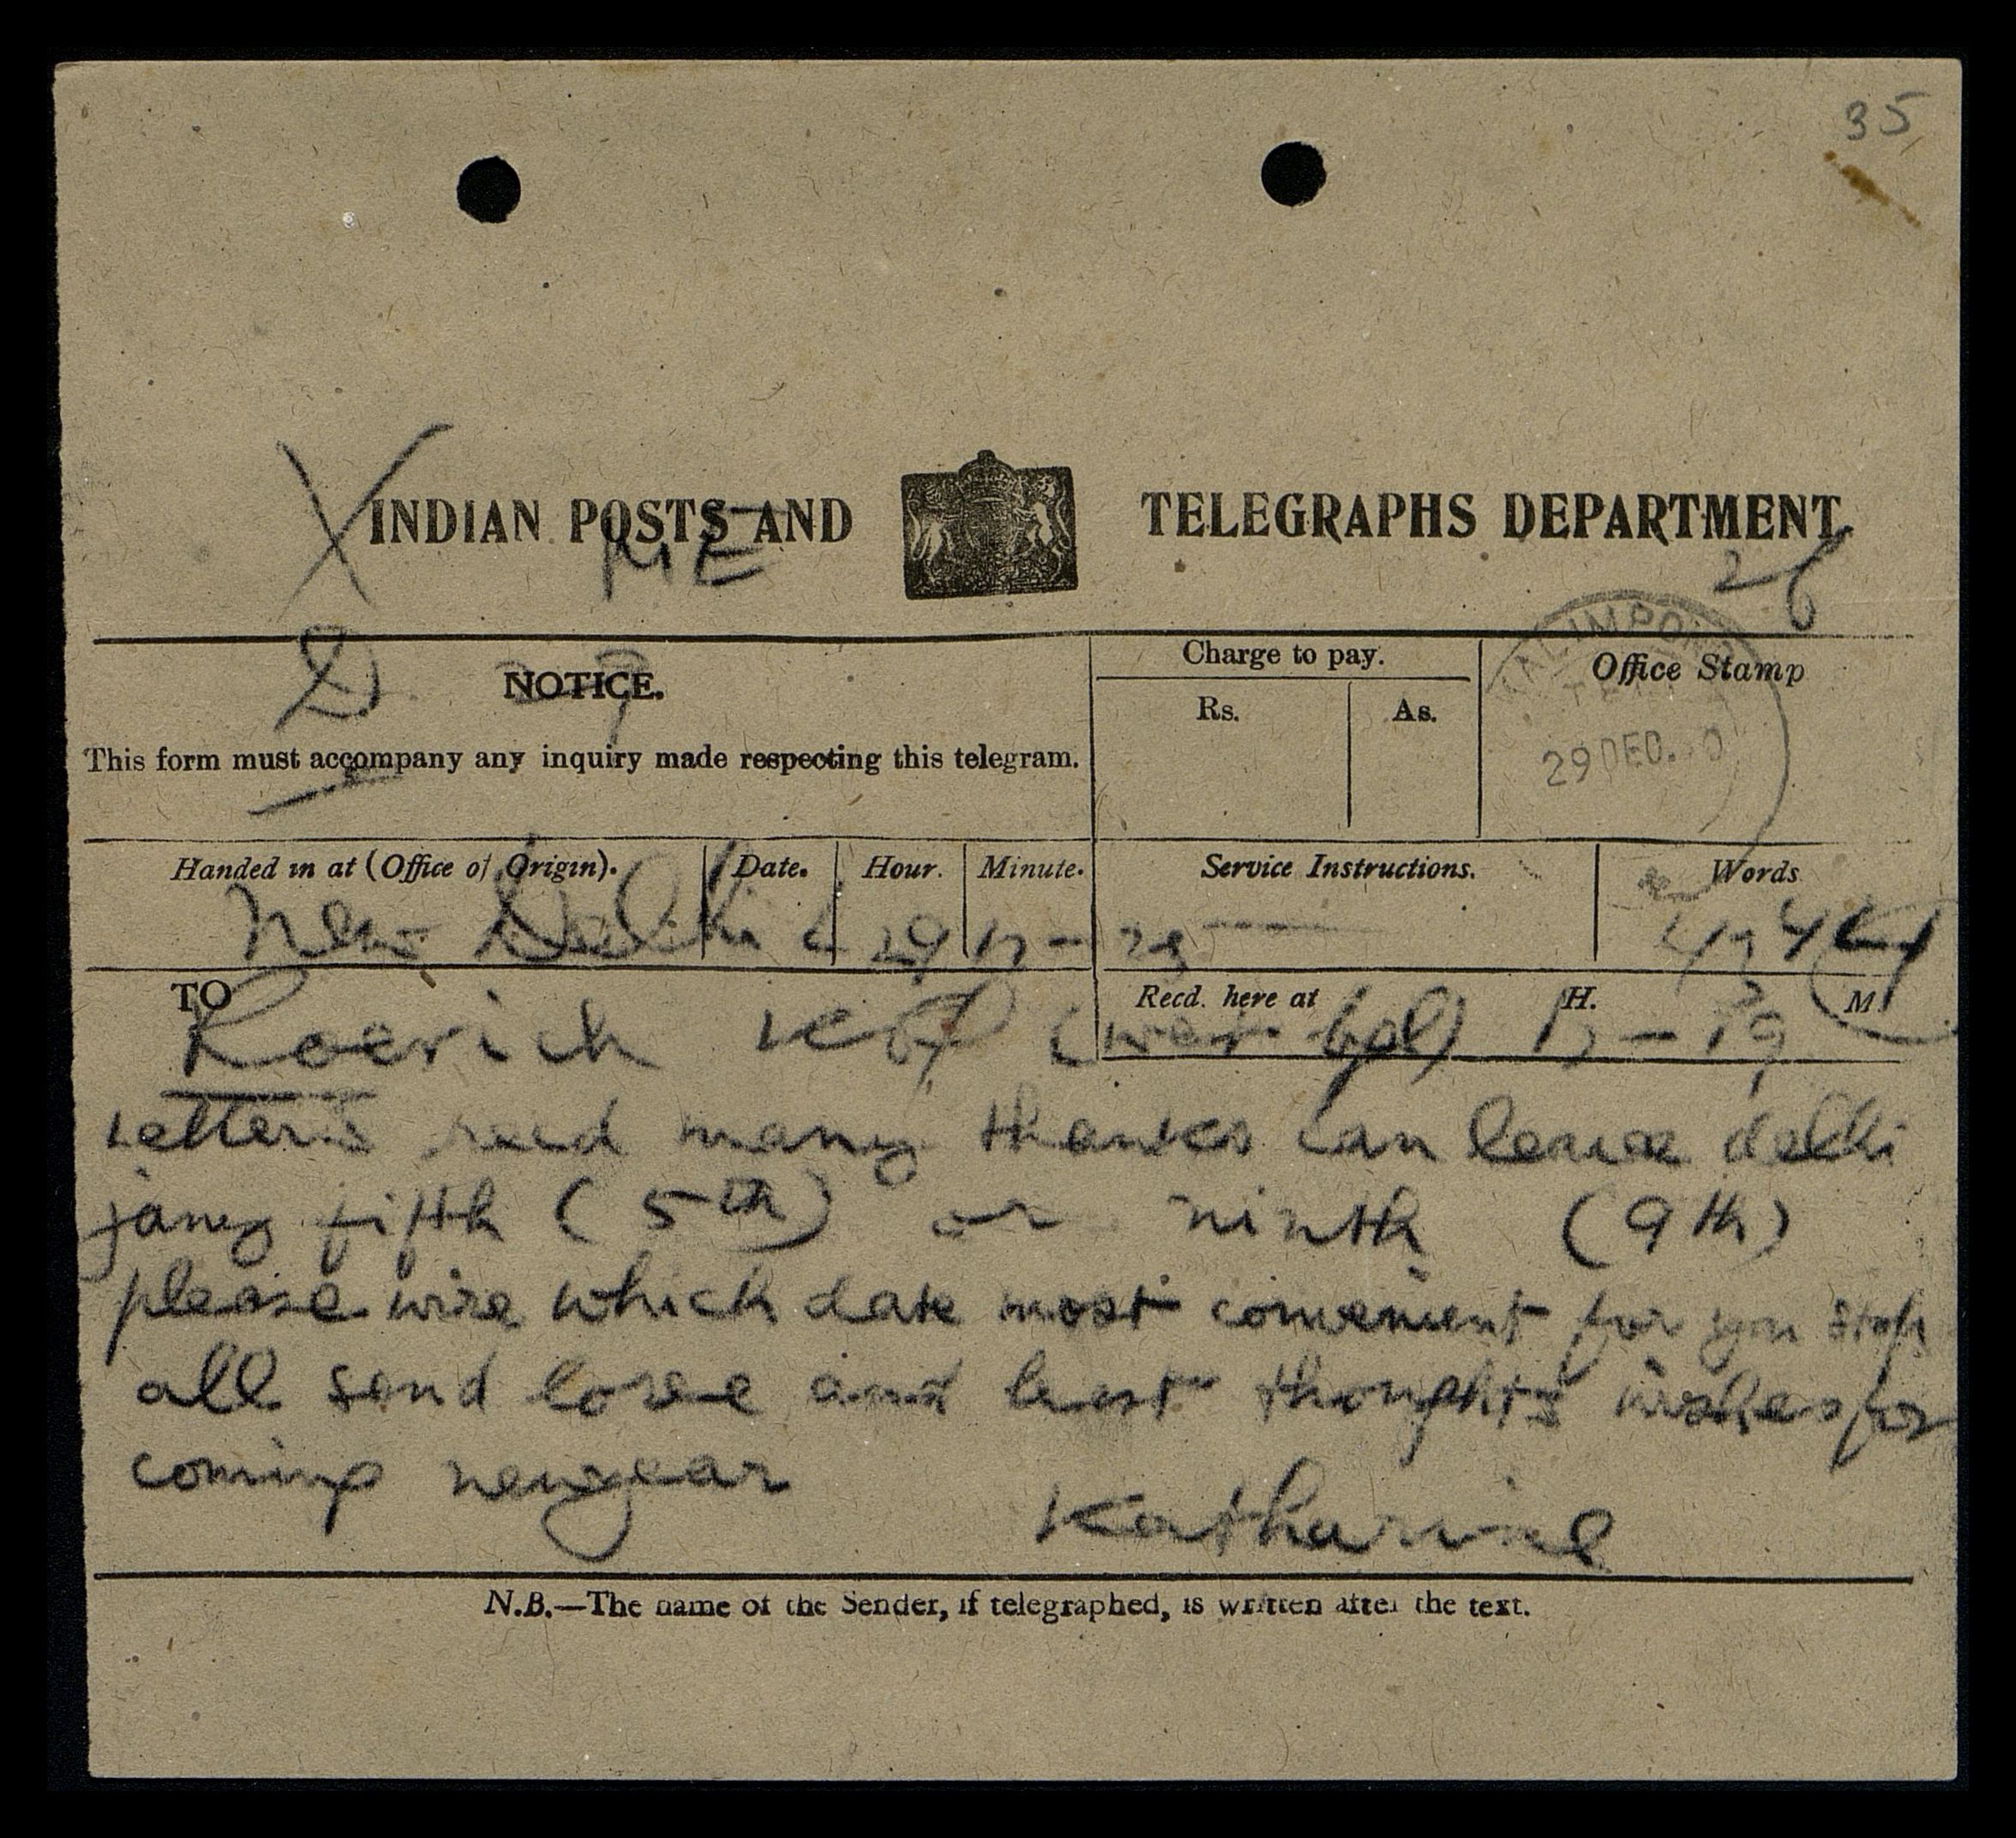 35
X INDIAN POSTS AND TELEGRAPHS DEPARTMENT
ME
26
D 27
NOTICE.
This form must accompany any inquiry made respecting this telegram.
Charge to pay.
Rs. As.
Office Stamp
KALIMPONG
29 DEC.
Handed in at (Office of Origin). Date. Hour. Minute. Service Instructions. Words
New Delhi 29
TO
Recd. here at H. M.
Roerich
Letters recd many thanks can leave delhi
jany fifth (5th) or ninth (9th)
please wire which date most convenient for you stop
all send love and best thoughts wishes for
coming newyear
Katharine
N.B.—The name of the Sender, if telegraphed, is written after the text.